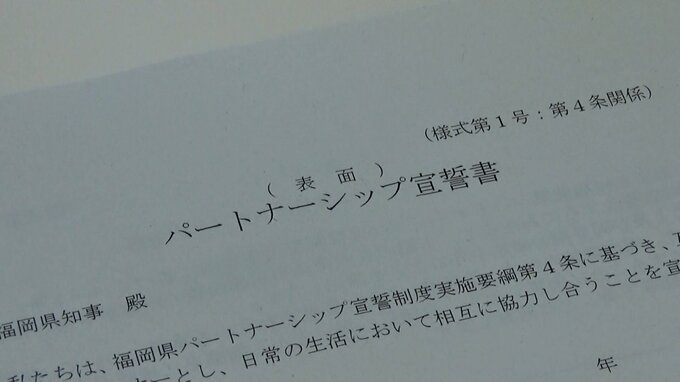 （様式第１号：第４条関係）
（表面）
パートナーシップ宣誓書
福岡県知事 殿
私たちは、福岡県パートナーシップ宣誓制度実施要綱第４条に基づき、
とし、日常の生活において相互に協力し合うことを宣
年